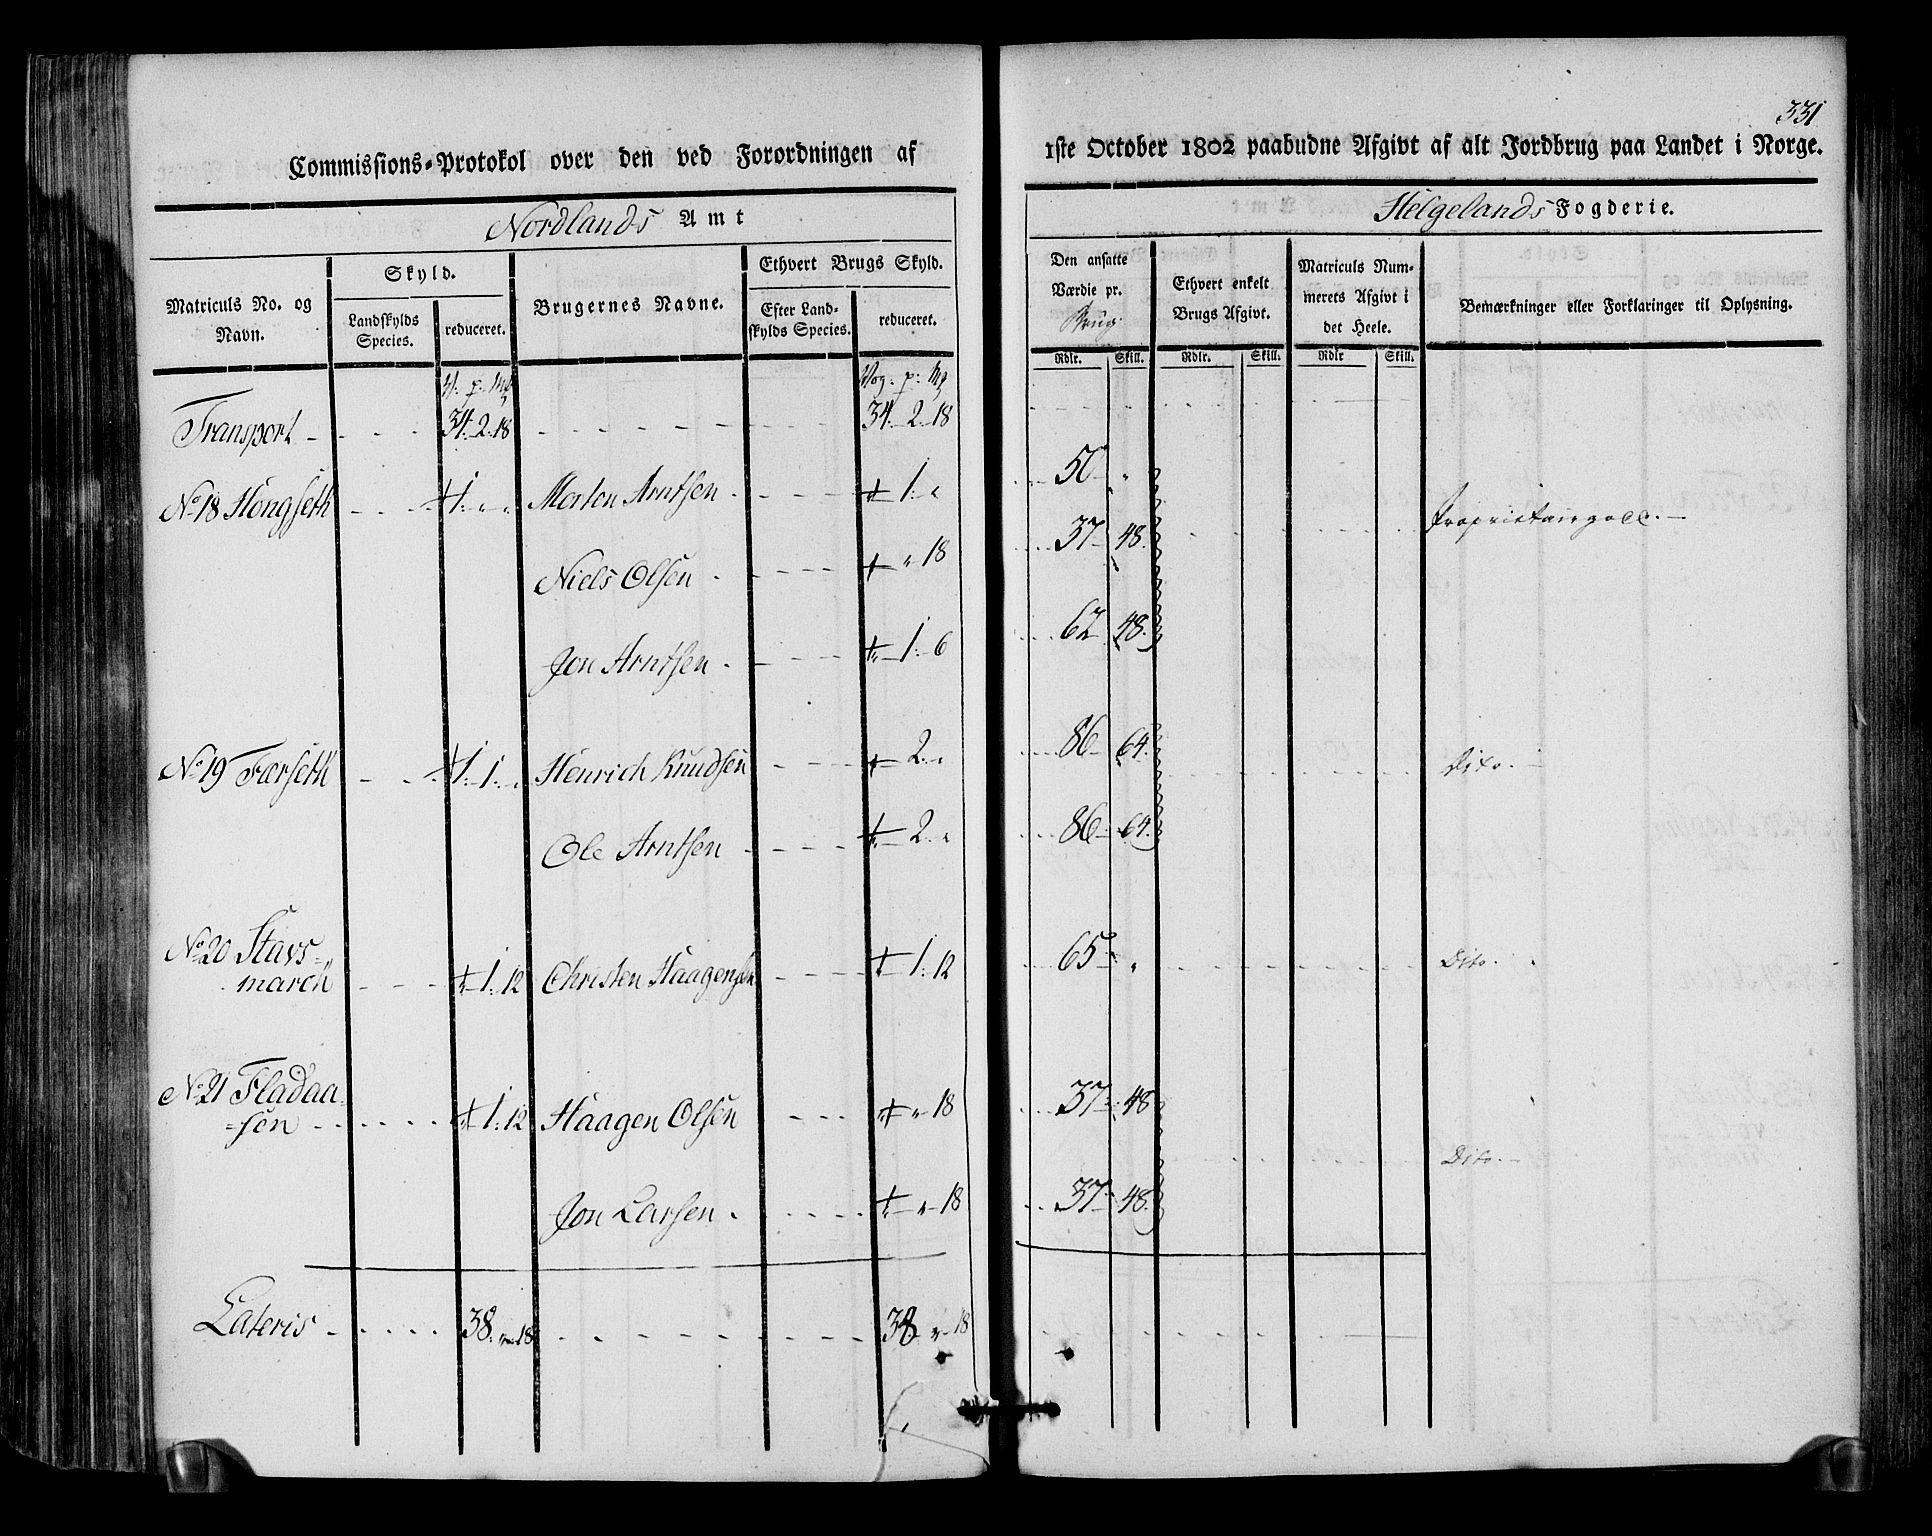 331
Commissions-Protokol over den ved Forordningen af 1ste October 1802 paabudne Afgivt af alt Jordbrug paa Landet i Norge.
Nordlands Amt
Helgelands Fogderie.
Matriculs No. og Navn.
Skyld.
Landskylds Species.
reduceret.
Brugernes Navne.
Ethvert Brugs Skyld.
Efter Landskylds Species.
reduceret.
Den ansatte Værdie pr. Brug
Ethvert enkelt Brugs Afgivt.
Matriculs Nummerets Afgivt i det Heele.
Bemærkninger eller Forklaringer til Oplysning.
Rdlr. Skill. Rdlr. Skill. Rdlr Skill.
V. p. Mk Vog. p. Mk
Transport 34. 2. 18 34. 2. 18
No 18 Hongseth 1. " " Morten Arntsen 1. " 50 "
Proprietairgods.
Niels Olsen " 18 37 48.
Jon Arntsen 1. 6 62 48.
No 19 Færseth 1. 1. " Henrich Knudsen 2. " 86 64. Dito.
Ole Arntsen 2. " 86 64.
No 20 Stavs=
march 1. 12 Christen Haagensen 1. 12 65 " Dito.
No 21 Fladaa=
=sen 1. 12 Haagen Olsen " 18 37 48
Dito.
Jon Larsen " 18 37 48.
Lateris 38. " 18 38 " 18